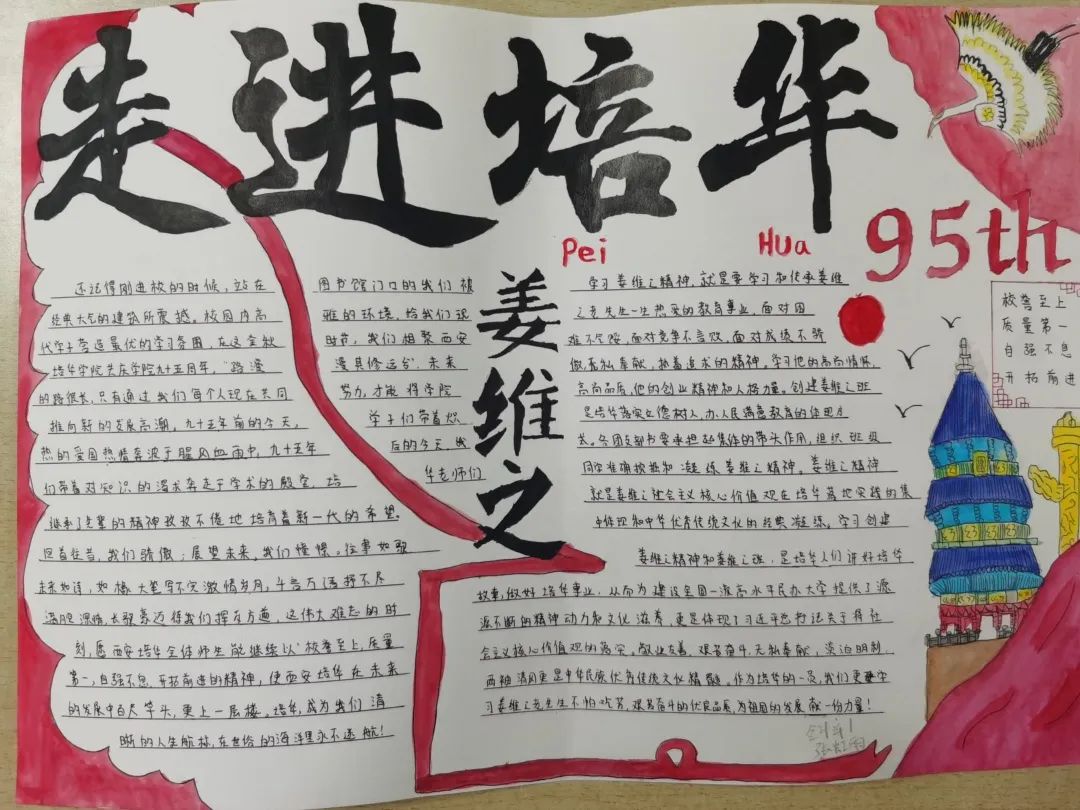 走进培华
Pei Hua
95th
姜维之
校誉至上
质量第一
自强不息
开拓前进
还记得刚进校的时候，站在
图书馆门口的我们被
经典大气的建筑所震撼。校园内高
雅的环境，给我们现
代学子营造最优的学习氛围，在这金秋
时节，我们相聚西安
培华学院共庆学院九十五周年，“路漫
漫其修远兮”，未来
的路很长，只有通过我们每个人现在共同
努力，才能将学院
推向新的发展高潮，九十五年前的今天，
学子们带着炽
热的爱国热情奔波于腥风血雨中，九十五年
后的今天，我
们带着对知识的渴求奔走于学术的殿堂，培
华老师们
继承了先辈的精神孜孜不倦地培育着新一代的希望。
回首往昔，我们骄傲；展望未来，我们憧憬，往事如歌
未来如诗，如椽大笔写不完激情岁月，千言万语抒不尽
满腔深情，长歌豪迈待我们挥斥方遒，这伟大难忘的时
刻，愿西安培华全体师生能继续以‘校誉至上，质量
第一，自强不息，开拓前进的精神，使西安培华在未来
的发展中百尺竿头，更上一层楼。培华，成为我们清
晰的人生航标，在世俗的海洋里永不迷航！
学习姜维之精神，就是要学习和传承姜维
之先生一生热爱的教育事业，面对困
难不气馁，面对竞争不言败，面对成绩不骄
傲，无私奉献，执着追求的精神。学习他的高尚情怀，
高尚品质，他的创业精神和人格力量，创建姜维之班
是培华落实立德树人，办人民满意教育的体现
各团支部书要承担起集体的带头作用，组织班级
同学准确按热和凝练姜维之精神。姜维之精神
就是姜维之社会主义核心价值观在培华落地实践的集
中体现和中华优育传统文化的经典凝练。学习创建
姜维之精神和姜维之班，是培华人们讲好培华
故事，做好培华事业，从而为建设全国一流高水平民办大学提供了源
源不断的精神动力和文化滋养，更是体现了习近平总书记关于社
会主义核心价值观的落实。敬业友善，艰苦奋斗，无私奉献，淡泊明制，
两袖清风更是中华民族优育传统文化精髓。作为培华的一员，我们更要学
习姜维之先生不怕吃苦，艰苦奋斗的优良品质，为祖国的发展献一份力量！